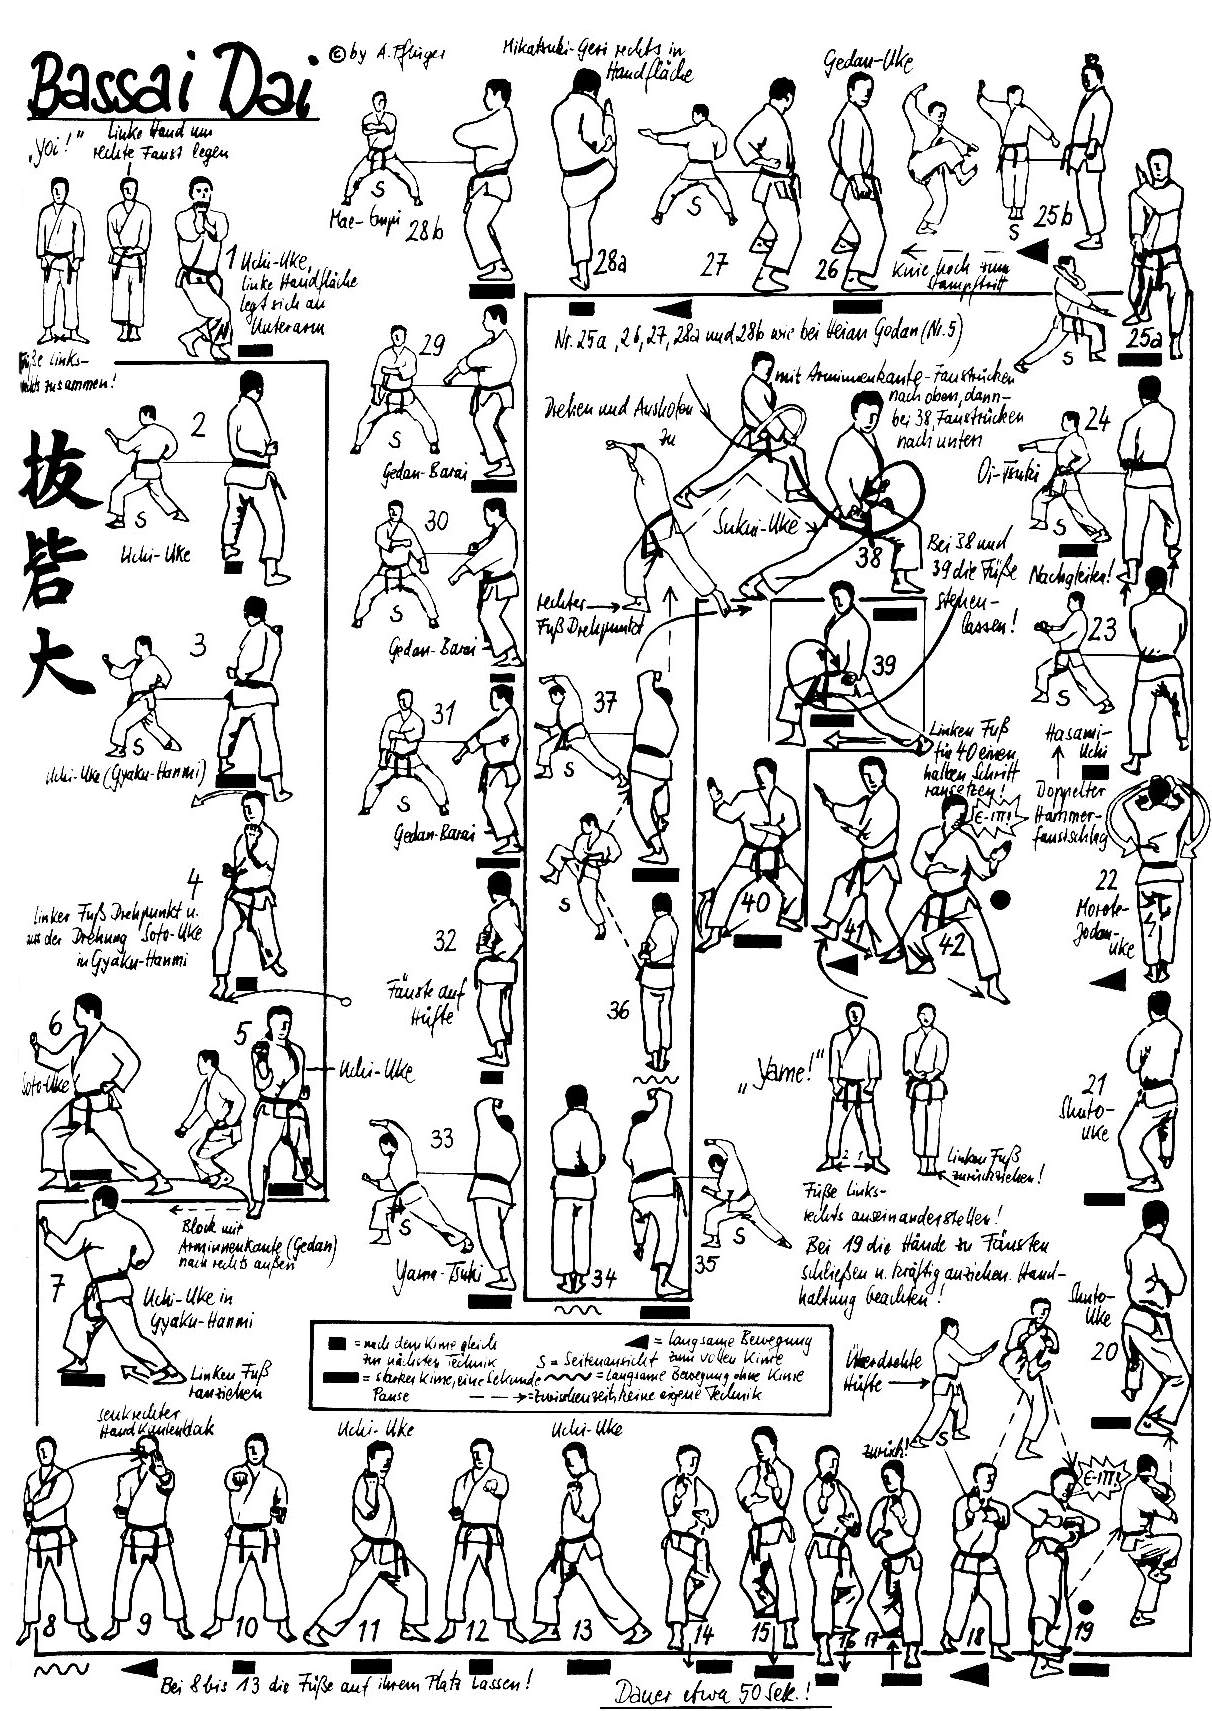 Bassai Dai
© by A. Pflüger
„Yoi!"
linke Hand um
rechte Faust legen
Füße links-
rechts zusammen!
1
Uchi-Uke,
linke Handfläche
legt sich an
Unterarm
抜
砦
大
2
S
Uchi-Uke
3
S
Uchi-Uke (Gyaku-Hanmi)
4
linker Fuß Drehpunkt u.
aus der Drehung Soto-Uke
in Gyaku-Hanmi
5
Uchi-Uke
6
Soto-Uke
Block mit
Arminnenkante (Gedan)
nach rechts außen
7
Uchi-Uke in
Gyaku-Hanmi
Linken Fuß
ranziehen
senkrechter
Handkantenblock
8
9
10
Uchi-Uke
11
12
Uchi-Uke
13
14
15
16
17
zurück!
18
19
Bei 8 bis 13 die Füße auf ihrem Platz lassen!
Dauer etwa 50 Sek.!
Überdrehte
Hüfte
S
Shuto-
Uke
20
21
Shuto-
Uke
22
Morote-
Jodan-
Uke
Hasami-
Uchi
Doppelter
Hammer-
faustschlag
23
S
24
Oi-Tsuki
S
Nachgleiten!
25a
S
25b
S
Knie hoch zum
Stampftritt
Gedan-Uke
26
27
S
Mikatsuki-Geri rechts in
Handfläche
28a
28b
S
Nr. 25a, 26, 27, 28a und 28b wie bei Heian Godan (Nr. 5)
29
S
Gedan-Barai
30
S
Gedan-Barai
31
S
Gedan-Barai
32
Fäuste auf
Hüfte
33
S
Yama-Tsuki
34
35
S
36
S
37
S
rechter
Fuß Drehpunkt
Drehen und Ausholen
zu
mit Arminnenkante-Faustrücken
nach oben, dann-
bei 38, Faustrücken
nach unten
Sukui-Uke
38
Bei 38 und
39 die Füße
stehen-
lassen!
39
Linken Fuß
für 40 einen
halben Schritt
ransetzen!
40
41
42
„Yame!"
2 1
Linken Fuß
zurückziehen!
Füße links-
rechts auseinanderstellen!
Bei 19 die Hände zu Fäusten
schließen u. kräftig anziehen. Hand-
haltung beachten!
= nach dem Kime gleich
zur nächsten Technik
= starker Kime, eine Sekunde
Pause
= langsame Bewegung
S = Seitenansicht zum vollen Kime
= langsame Bewegung ohne Kime
= Zwischenzeit, keine eigene Technik